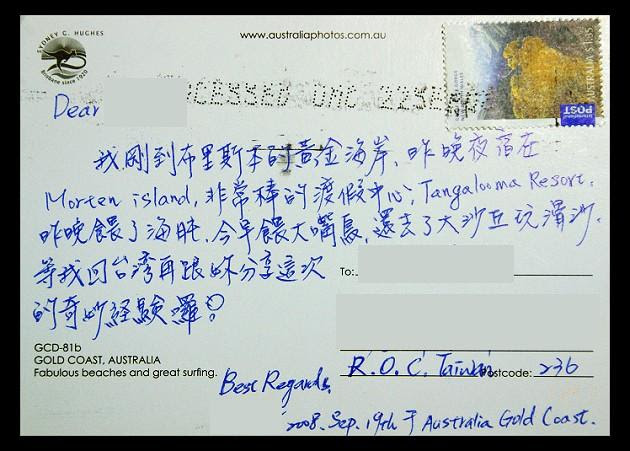 SYDNEY G. HUGHES
Brisbane since 1920
www.australiaphotos.com.au
AUSTRALIA $1.35
International POST
CESSED DMC 22SE
Dear
我剛到布里斯本的黃金海岸,昨晚夜宿在
Morten island,非常棒的渡假中心,Tangalooma Resort.
昨晚餵了海豚,今早餵大嘴鳥,還去了大沙丘玩滑沙.
等我回台湾再跟妳分享這次
的奇妙経驗囉!
To:
GCD-81b
GOLD COAST, AUSTRALIA
Fabulous beaches and great surfing.
R.O.C. Taiwan Postcode: 236
Best Regards,
2008. Sep. 19th 于 Australia Gold Coast.